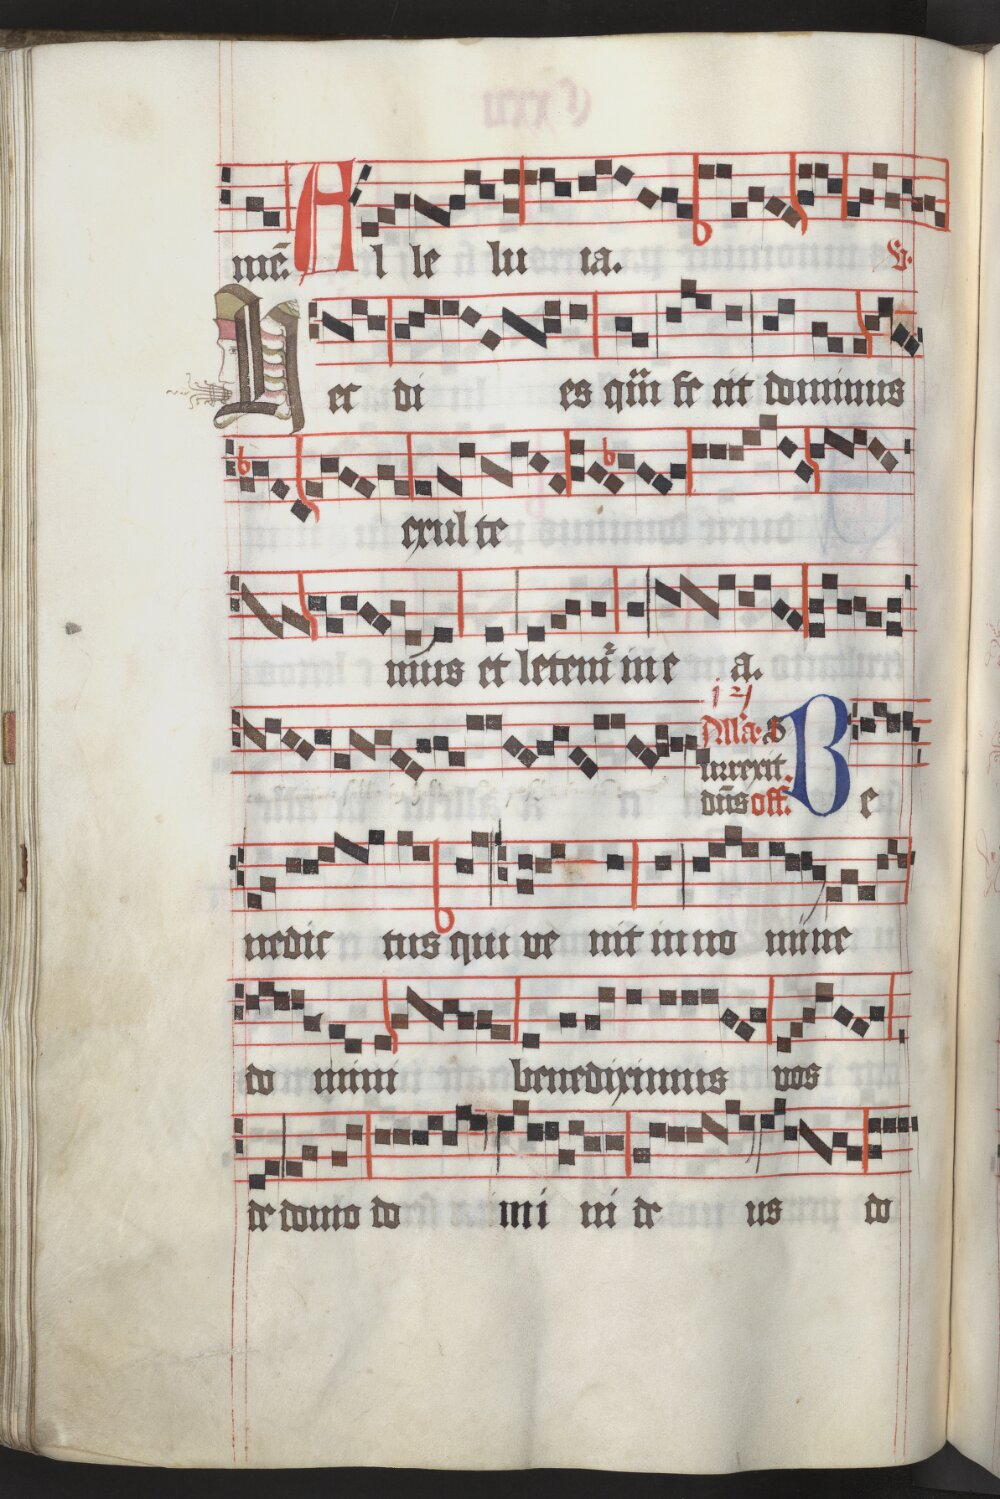 mē. Al le lu ia. V.
Hec di es qūi fe cit dominus
exul te
mus et letem̄ in e a.
j 2j
Alla. S
urrexit
dn̄s off. Be
nedic tus qui ve nit in no mine
do mini benediximus vos
de domo do mi ni de us do